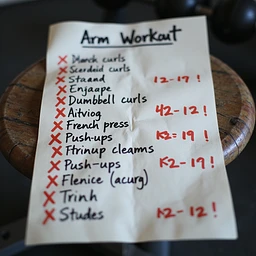 Arm Workout
✗ Dlanch curls
✗ Scordeid curls
✗ Staand 12-17 !
✗ Enjaape
✗ Dumbbell curls
✗ Aitviog 42-12 !
✗ French press
✗ Push-ups K2= 19 !
✗ Ftrinup cleams
✗ Push-ups K2-19 !
✗ Flenice (acurg)
✗ Trinh
✗ Studes K2-12 !